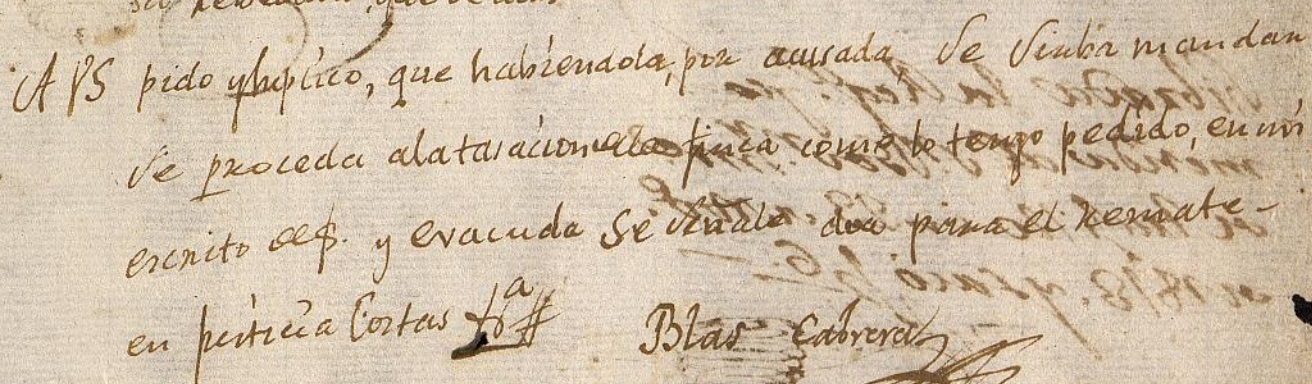 su rebeldia, que
A VS pido y suplico, que habiendola, por acusada, se sirba mandar
se proceda ala tasacion de la finca como lo tengo pedido, en mi
escrito de f. y evacuda se señale dia para el remate
en justicia Costas &a
Blas Cabrera